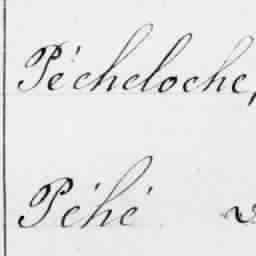 Pécheloche,
Péhé